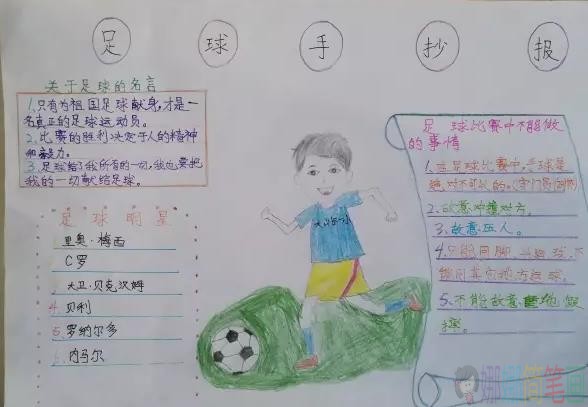 足 球 手 抄 报
关于足球的名言
1.只有为祖国足球献身,才是一
名真正的足球运动员。
2.比赛的胜利决定于人的精神
和毅力。
3.足球给了我所有的一切,我也要把
我的一切献给足球。
足球明星
1.里奥·梅西
2.C罗
3.大卫·贝克汉姆
4.贝利
5.罗纳尔多
6.内马尔
足球比赛中不能做
的事情
1.在足球比赛中,手球是
绝对不可以的。(守门员例外)
2.故意冲撞对方。
3.故意压人。
4.只能用脚、头运球,不
能用其它地方运球。
5.不能故意 地假
摔。
简笔画